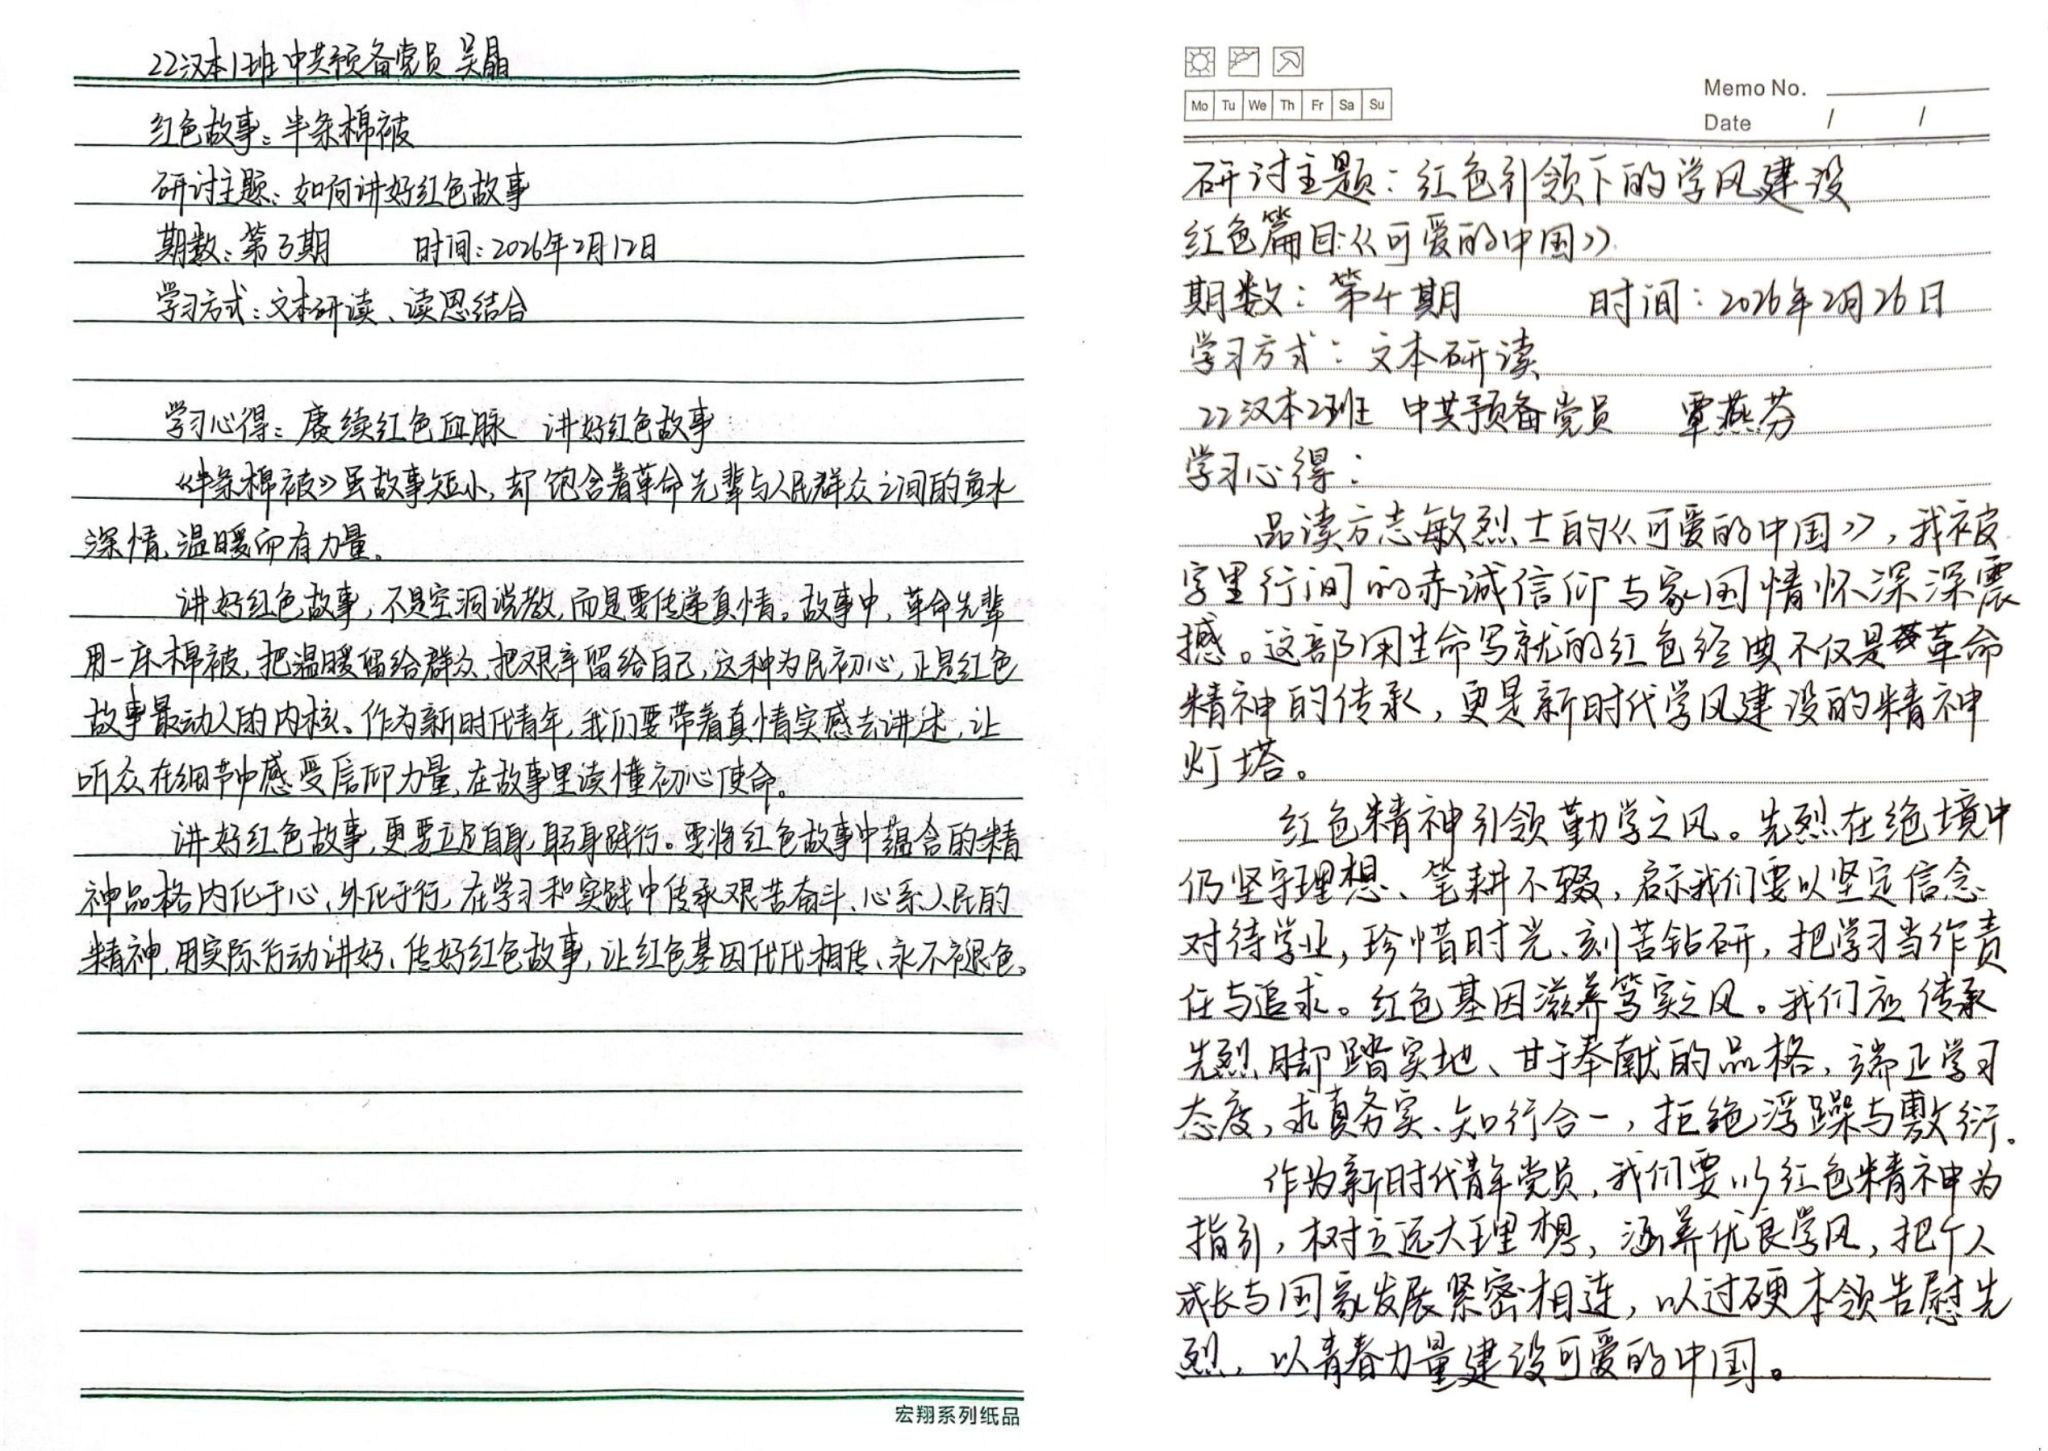 22汉本1班 中共预备党员 吴晶
红色故事：半条棉被
研讨主题：如何讲好红色故事
期数：第3期 时间：2026年2月12日
学习方式：文本研读、读思结合
学习心得：赓续红色血脉 讲好红色故事
《半条棉被》虽故事短小，却饱含着革命先辈与人民群众之间的鱼水
深情，温暖而有力量。
讲好红色故事，不是空洞说教，而是要传递真情。故事中，革命先辈
用一床棉被，把温暖留给群众，把艰辛留给自己，这种为民初心，正是红色
故事最动人的内核。作为新时代青年，我们要带着真情实感去讲述，让
听众在细节中感受信仰力量，在故事里读懂初心使命。
讲好红色故事，更要立足自身，躬身践行。要将红色故事中蕴含的精
神品格内化于心、外化于行，在学习和实践中传承艰苦奋斗、心系人民的
精神，用实际行动讲好、传好红色故事，让红色基因代代相传、永不褪色。
宏翔系列纸品
Mo Tu We Th Fr Sa Su
Memo No.
Date / /
研讨主题：红色引领下的学风建设
红色篇目：《可爱的中国》
期数：第4期 时间：2026年2月26日
学习方式：文本研读
22汉本2班 中共预备党员 覃燕芬
学习心得：
品读方志敏烈士的《可爱的中国》，我被
字里行间的赤诚信仰与家国情怀深深震
撼。这部用生命写就的红色经典不仅是革命
精神的传承，更是新时代学风建设的精神
灯塔。
红色精神引领勤学之风。先烈在绝境中
仍坚守理想、笔耕不辍，启示我们要以坚定信念
对待学业，珍惜时光、刻苦钻研，把学习当作责
任与追求。红色基因滋养笃实之风。我们应传承
先烈脚踏实地、甘于奉献的品格，端正学习
态度，求真务实、知行合一，拒绝浮躁与敷衍。
作为新时代青年党员，我们要以红色精神为
指引，树立远大理想，涵养优良学风，把个人
成长与国家发展紧密相连，以过硬本领告慰先
烈，以青春力量建设可爱的中国。